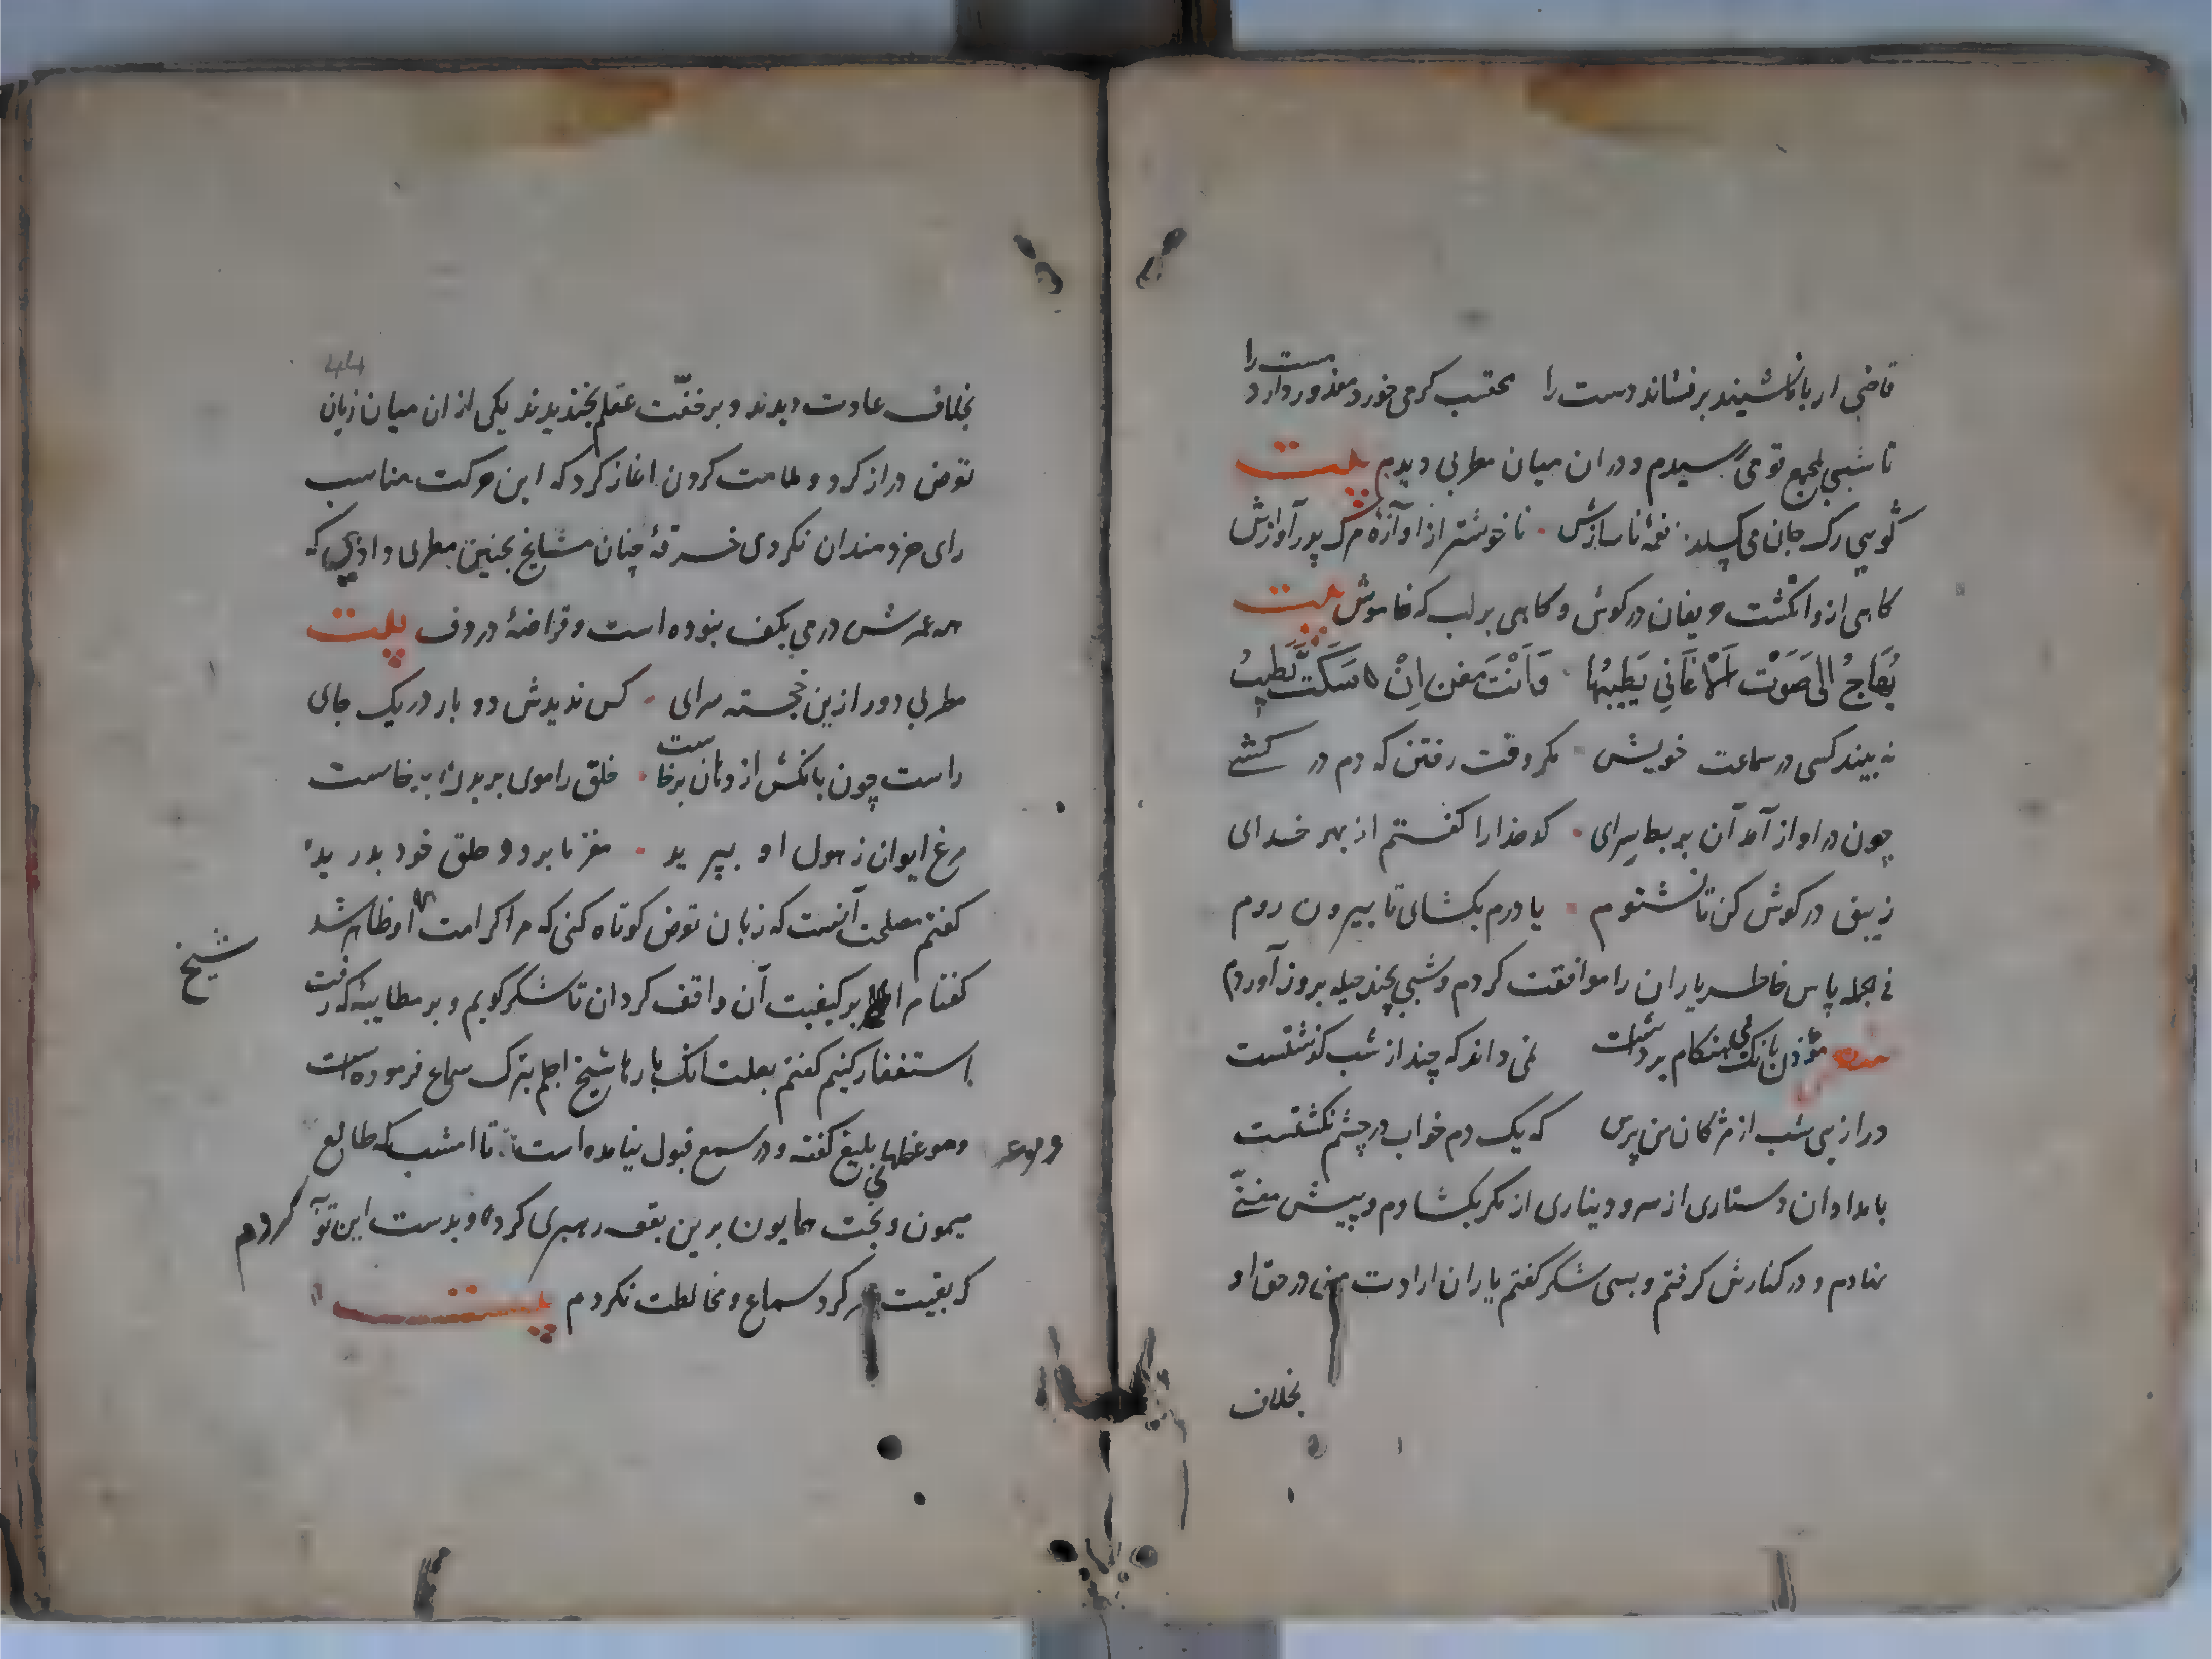 قاضی ار با ما نشیند برفشاند دست را محتسب کر می خورد معذور دارد مست را
تا شبی بمجمع قومی برسیدم و در ان میان مطربی دیدم بیت
گویی رک جان می کسلد نغمهٔ ناسازش ناخوشتر از اوازهٔ مرک پدر آوازش
کاهی از و انکشت حریفان در کوش و کاهی بر لب که خاموش بیت
یُهَاجُ الی صَوْت الاَغَانِی یَطیبُها وَاَنْتَ مغن اِنْ سَکَتَّ نَطِیبُ
نه بیند کسی در سماعت خویشی مکر وقت رفتن که دم در کشی
چون در اواز آمد آن بربط سرای کدخدا را کفتم از بهر خدای
زیبق در کوش کن تا نشنوم یا درم بکشای تا بیرون روم
فی الجمله پاس خاطر یاران را موافقت کردم و شبی بچند حیله بروز آوردم
مؤذن بانک بی هنکام برداشت نمی داند که چند از شب کذشتست
درازیی شب از مژکان من پرس که یک دم خواب در چشمم نکشتست
بامدادان دستاری از سر و دیناری از کمر بکشادم و پیش مغنی
بنهادم و در کنارش کرفتم و بسی شکر کفتم یاران ارادت من در حق او
بخلاف
44
بخلاف عادت دیدند و بر خفّت عقلم بخندیدند یکی از ان میان زبان
تعرض دراز کرد و ملامت کردن اغاز کرد که این حرکت مناسب
رای خردمندان نکردی خرقهٔ چنان مشایخ بچنین مطربی دادن که
همه عمرش درمی بکف نبوده است و قراضهٔ در دف بیت
مطربی دور ازین خجسته سرای کس ندیدش دو بار در یک جای
راست چون بانکش از دهان برخاست خلق را موی بر بدن برخاست
مرغ ایوان ز هول او بپرید مغز ما برد و حلق خود بدرید
کفتم مصلحت آنست که زبان تعرض کوتاه کنی که مرا کرامت او ظاهر شد
کفتا مرا بر کیفیت آن واقف کردان تا شکر کویم و بر مطایبهٔ که رفت
استغفار کنیم کفتم بعلت انک بارها شیخ اجلم بترک سماع فرموده است
شیخ
وموعظهای بلیغ کفته و در سمع قبول نیامده است تا امشب که طالع
میمون و بخت همایون برین بقعه رهبری کرده و بدست این توبه کردم
که بقیت عمر کرد سماع و مخالطت نکردم بیت